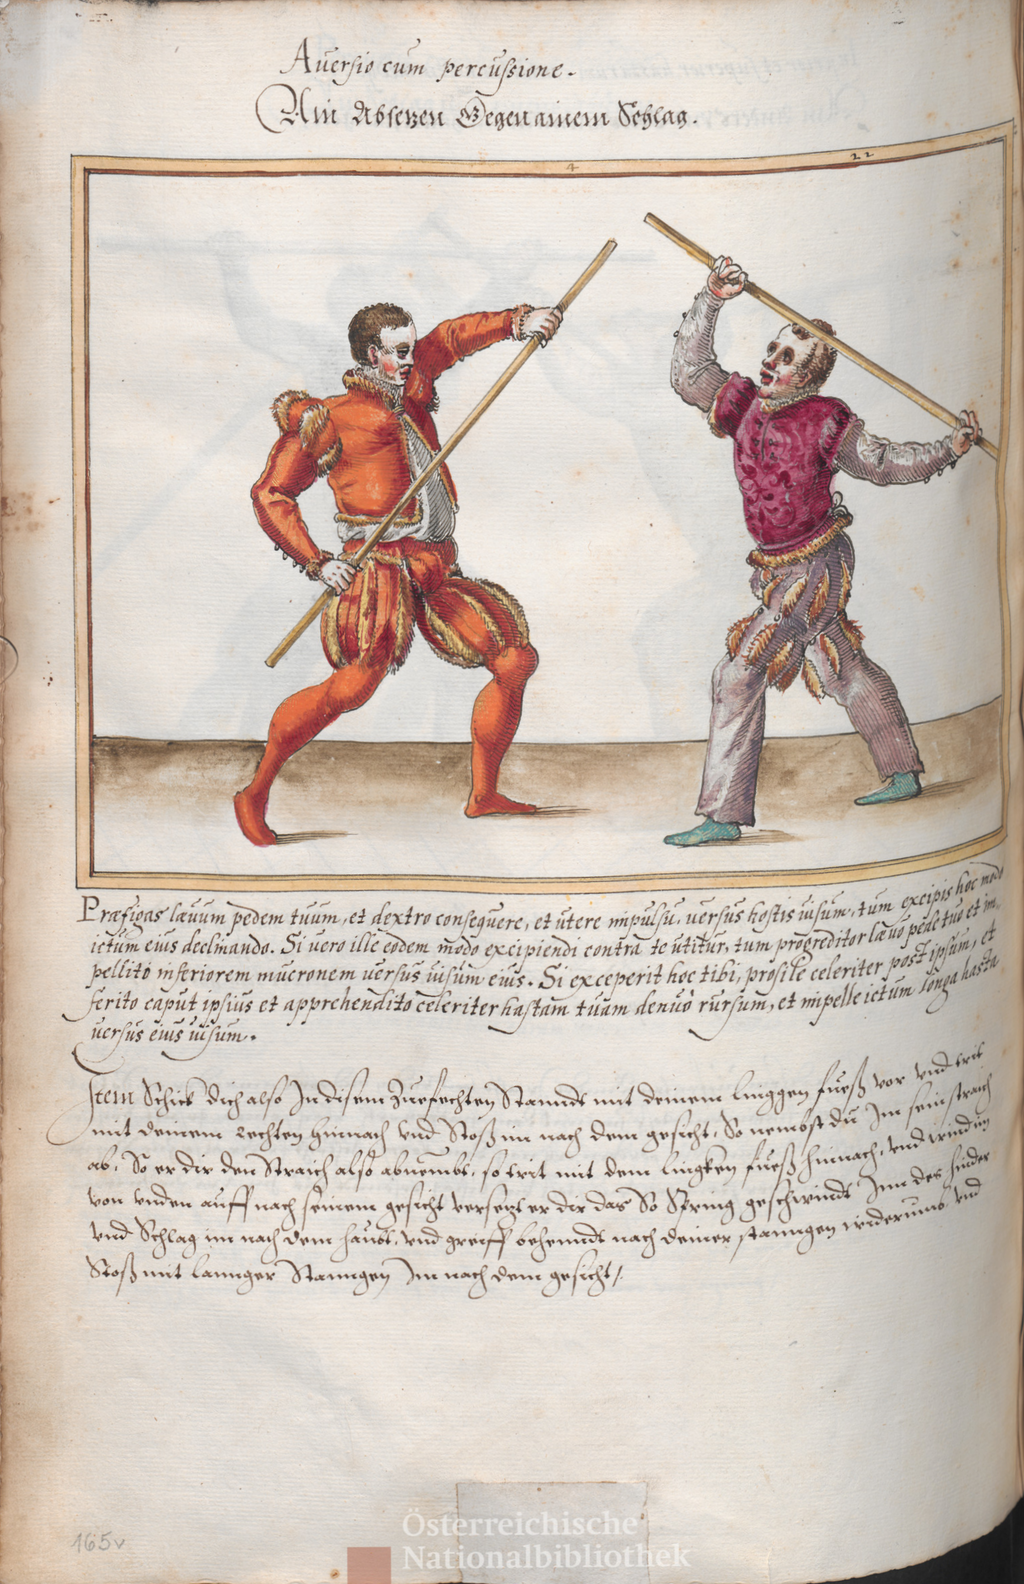 Auersio cum percussione.
Ain Absetzen Gegen ainem Schlag.
4
22
Præfigas lævum pedem tuum, et dextro consequere, et utere impulsu, versus hostis uisum, tum excipis hoc modo
ictum eius declinando. Si vero ille eodem modo excipiendi contra te utitur, tum progreditor lævo pede tuo et im„
pellito inferiorem mucronem versus uisum eius. Si exceperit hoc tibi, prosile celeriter post ipsum, et
ferito caput ipsius et apprehendito celeriter hastam tuam denuo rursum, et impelle ictum longa hasta
uersus eius uisum.
Item Schick dich also In disem Zuefechten Stanndt mit deinem linggen fueß vor vnd trit
mit deinem rechten hinnach vnd Stoß im nach dem gesicht, So nembst du Im sein straich
ab, So er dir den Straich also abnembt, so trit mit dem lingken fueß hinnach, vnd wind im
von vnden auff nach seinem gesicht versetzt er dir das So Spring geschwindt Inn des hinder
vnd Schlag im nach dem haubt, vnd greiff behenndt nach deiner stanngen widerumb vnd
Stoß mit lannger Stanngen Im nach dem gesicht/.
165v
Österreichische
Nationalbibliothek